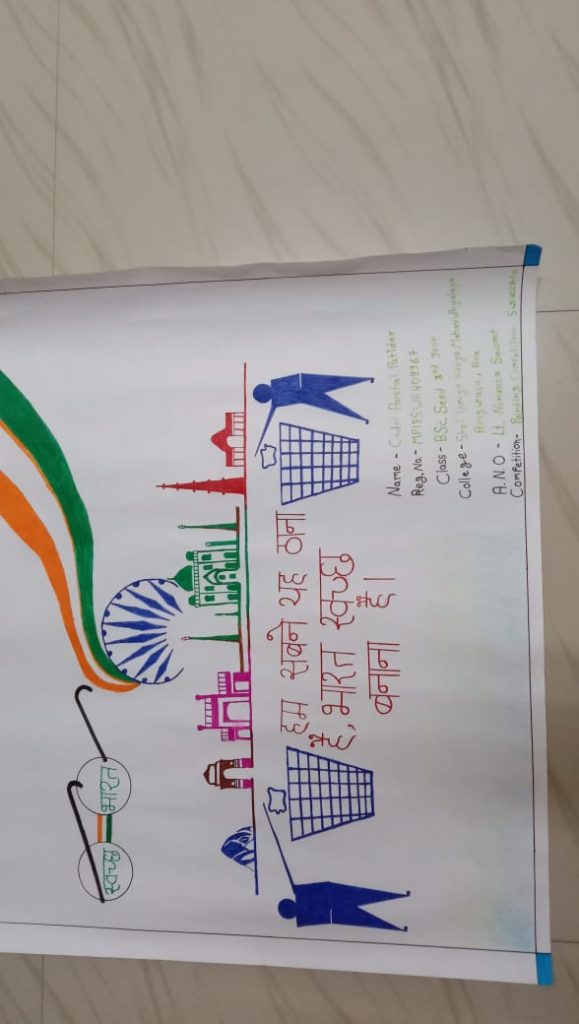 स्वच्छ भारत
हम सबने यह ठाना
है, भारत स्वच्छ
बनाना है।
Name - Cadet Patidar
Reg.No.-
Class - BSc. Seed 3rd year
College - Shri Umiya Kanya Mahavidhyalaya
Rangwasa, Rau
A.N.O - Lt. Namrata Sawant
Competition - Painting Competition